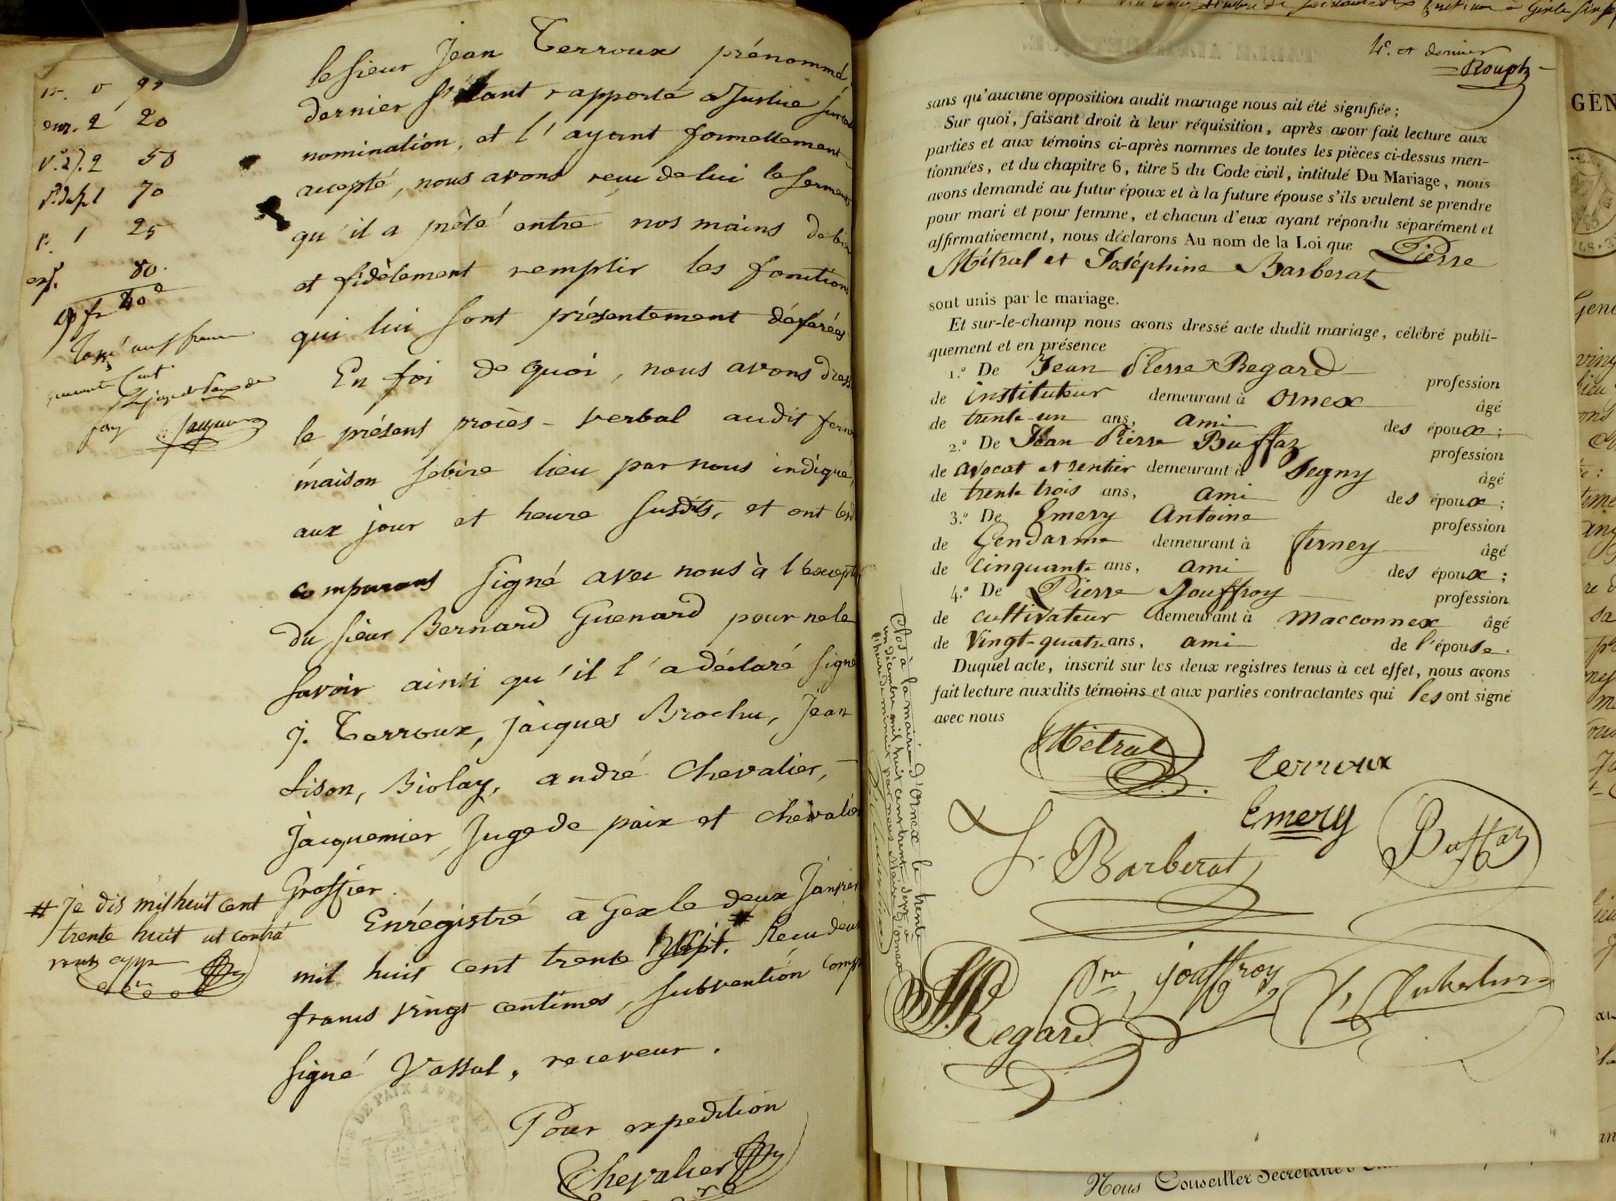 le sieur Jean Terroux prénommé
dernier s'étant rapporté à Justice sur sa
nomination, et l'ayant formellement
accepté, nous avons reçu de lui le serment
qu'il a prêté entre nos mains de bien
et fidèlement remplir les fonctions
qui lui sont présentement déférées
En foi de quoi, nous avons dressé
le présent procès-verbal audit ferney
maison sobire lieu par nous indiqué,
aux jour et heure susdits, et ont les
comparans signé avec nous à l'exception
du sieur Bernard Guenard pour ne le
savoir ainsi qu'il l'a déclaré signé
j. Terroux, jacques Brochu, Jean
Lison, Biolay, andré Chevalier,
Jacquemier, Juge de paix et Chevalier
Greffier.
Enrégistré à Gex le deux Janvier
mil huit cent trente sept. # Reçu deux
francs vingt centimes, subvention comprise
signé Vassal, receveur.
Pour expedition
Chevalier
20
50
70
25
80
# je dis mil huit cent
trente huit
DE PAIX A
4e. et dernier
Rouph
sans qu'aucune opposition audit mariage nous ait été signifiée;
Sur quoi, faisant droit à leur réquisition, après avoir fait lecture aux
parties et aux témoins ci-après nommes de toutes les pièces ci-dessus men-
tionnées, et du chapitre 6, titre 5 du Code civil, intitulé Du Mariage, nous
avons demandé au futur époux et à la future épouse s'ils veulent se prendre
pour mari et pour femme, et chacun d'eux ayant répondu séparément et
affirmativement, nous déclarons Au nom de la Loi que Pierre
Métral et Joséphine Barberat
sont unis par le mariage.
Et sur-le-champ nous avons dressé acte dudit mariage, célébré publi-
quement et en présence
1.º De Jean Pierre Regard profession
de instituteur demeurant à Ornex âgé
de trente-un ans, ami des époux;
2.º De Jean Pierre Buffaz profession
de avocat et rentier demeurant à Segny âgé
de trente trois ans, ami des époux;
3.º De Emery Antoine profession
de Gendarme demeurant à ferney âgé
de cinquante ans, ami des époux;
4.º De Pierre Jouffroy profession
de cultivateur demeurant à Maconnex âgé
de vingt-quatre ans, ami de l'épouse.
Duquel acte, inscrit sur les deux registres tenus à cet effet, nous avons
fait lecture auxdits témoins et aux parties contractantes qui les ont signé
avec nous
Métral
Terroux
Emery
J. Barberat
Buffaz
Regard
jouffroy
Clos à la mairie d'Ornex le trente
un décembre mil huit cent trente sept à
l'heure de minuit par nous Maire d'Ornex
GÉN
Nous Conseiller Secrétaire